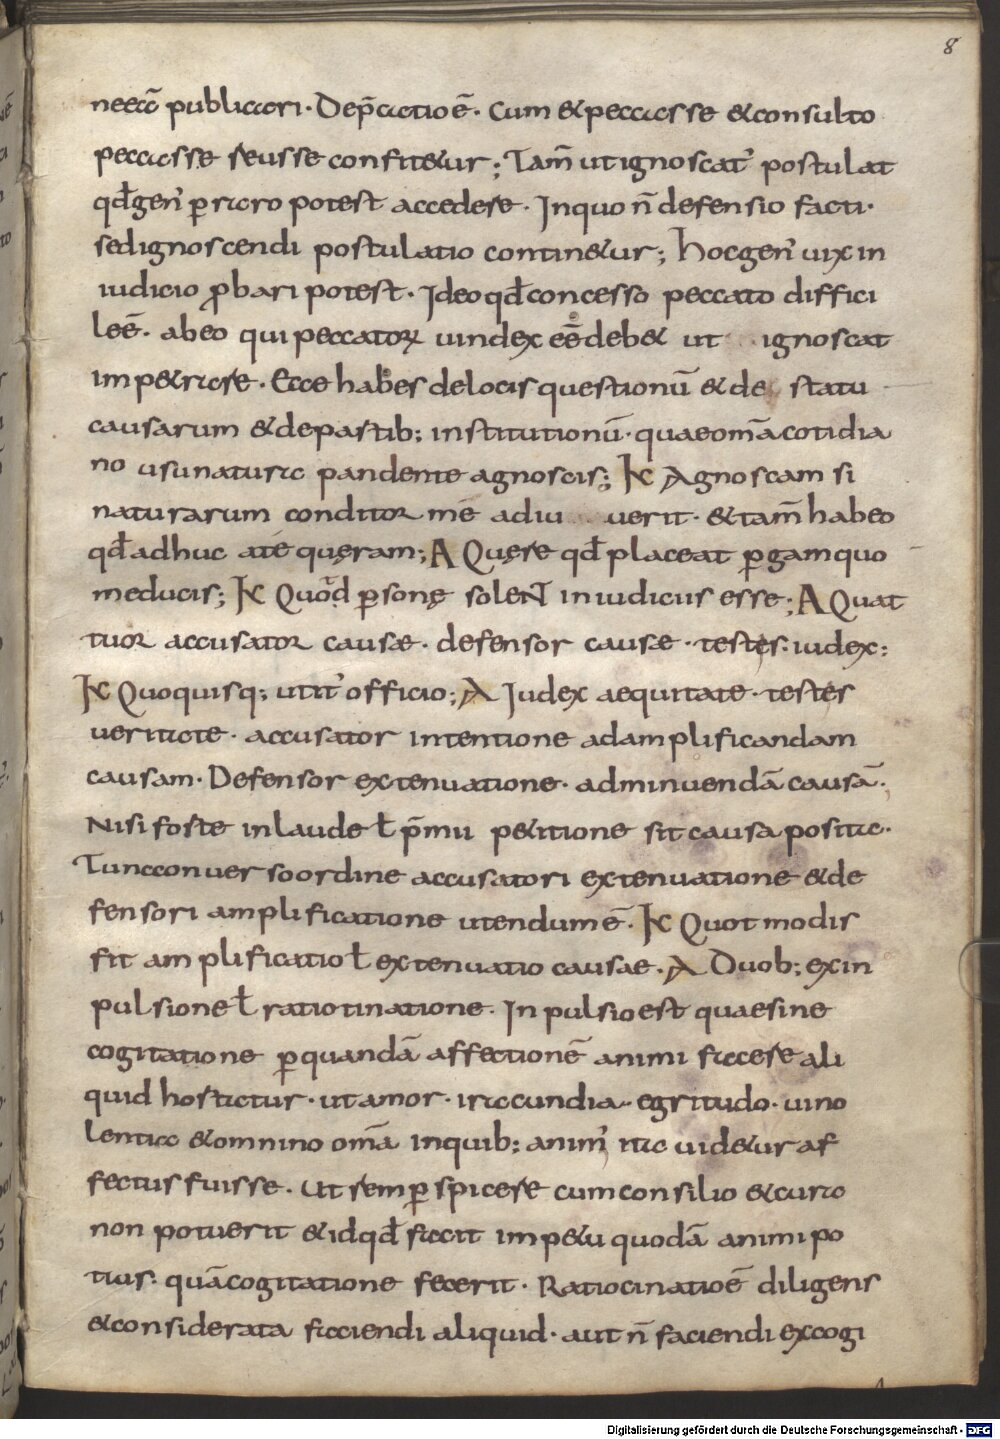 8
necẽ publicari. Dep̃catio ẽ. Cum & peccasse & consulto
peccasse se usse confit&ur; Tam̃ ut ignoscat' postulat
qđ gen' p̱raro potest accedere. In quo ñ defensio facti.
sed ignoscendi postulatio contin&ur; hoc gen' uix in
iudicio ꝓbari potest. Ideo qđ concesso peccato diffici
le ẽ. ab eo qui peccatoꝝ uindex eẽ deb& ut ignoscat
imp&rare. Ecce habes de locis questionũ & de statu
causarum & de partib; institutionũ. quae om̃a cotidia
no usu natura pandente agnoscis; K Agnoscam si
naturarum conditor me adiuuerit. & tam̃ habeo
qđ adhuc a te quęram; A Quęre qđ placeat ꝑgam quo
me ducis; K Quod ꝑsonę soleNT in iudiciis esse; A Quat
tuor accusator causae. defensor causae. testes. iudex;
K Quo quisq; utit' officio; A Iudex aequitate. testes
ueritate. accusator intentione ad amplificandam
causam. Defensor extenuatione. ad minuendã causã.
Nisi forte in laude ł p̃mii p&itione sit causa posita.
Tunc conuerso ordine accusatori extenuatione & de
fensori amplificatione utendum ẽ. K Quot modis
fit amplificatio ł extenuatio causae. A Duob; ex in
pulsione ł ratiotinatione. Inpulsio est quae sine
cogitatione ꝑ quandã affectionẽ animi facere ali
quid hortatur. ut amor. iracundia. egritudo. uino
lentia & omnino om̃a in quib; anim' ita uid&ur af
fectus fuisse. Ut rem ꝑspicere cum consilio & cura
non potuerit & id qđ facit imp&u quodã animi po
tius. quã cogitatione fecerit. Ratiocinatio ẽ diligens
& considerata faciendi aliquid. aut ñ faciendi excogi
Digitalisierung gefördert durch die Deutsche Forschungsgemeinschaft - DFG